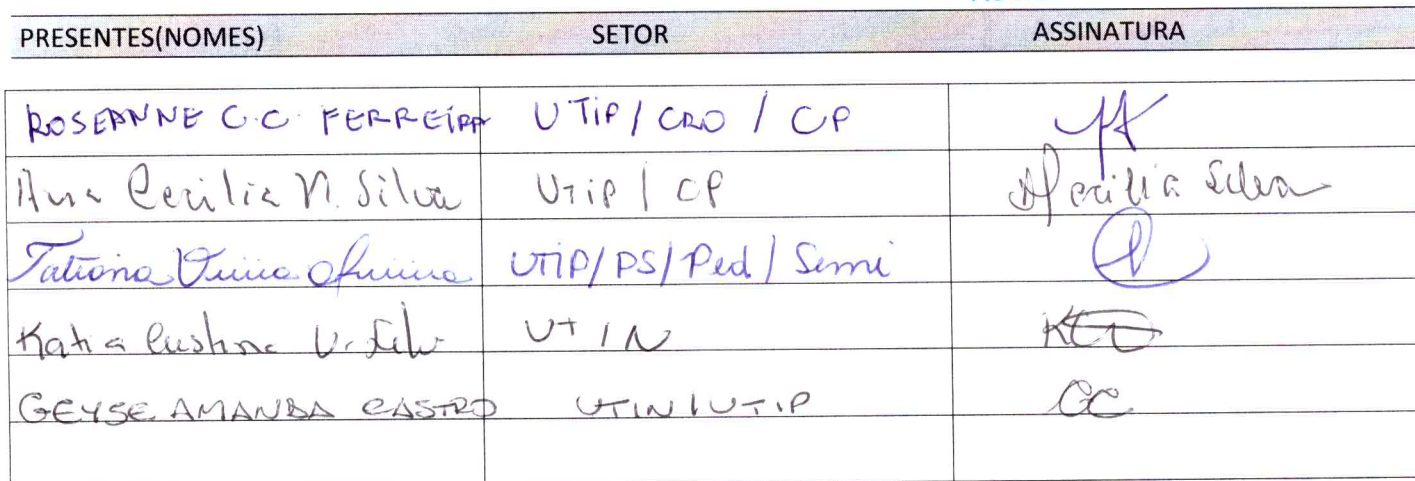 PRESENTES(NOMES) SETOR ASSINATURA
ROSEANNE C.C. FERREIRA UTIP / CRO / CP
Ana Cecilia N. Silva UTIP / CP Cecilia Silva
Tatiana UTIP/PS/Ped/Semi
Katia UTIN
GEYSE AMANDA CASTRO UTIN/UTIP GC